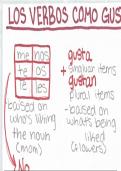 LOS VERBOS COMO GUS
me nos
te os
le les
gusta
+ singluar items
gustan
plural items
-based on
who's liking
the noun
(mom)
-based on
what's being
liked
(flowers)
No